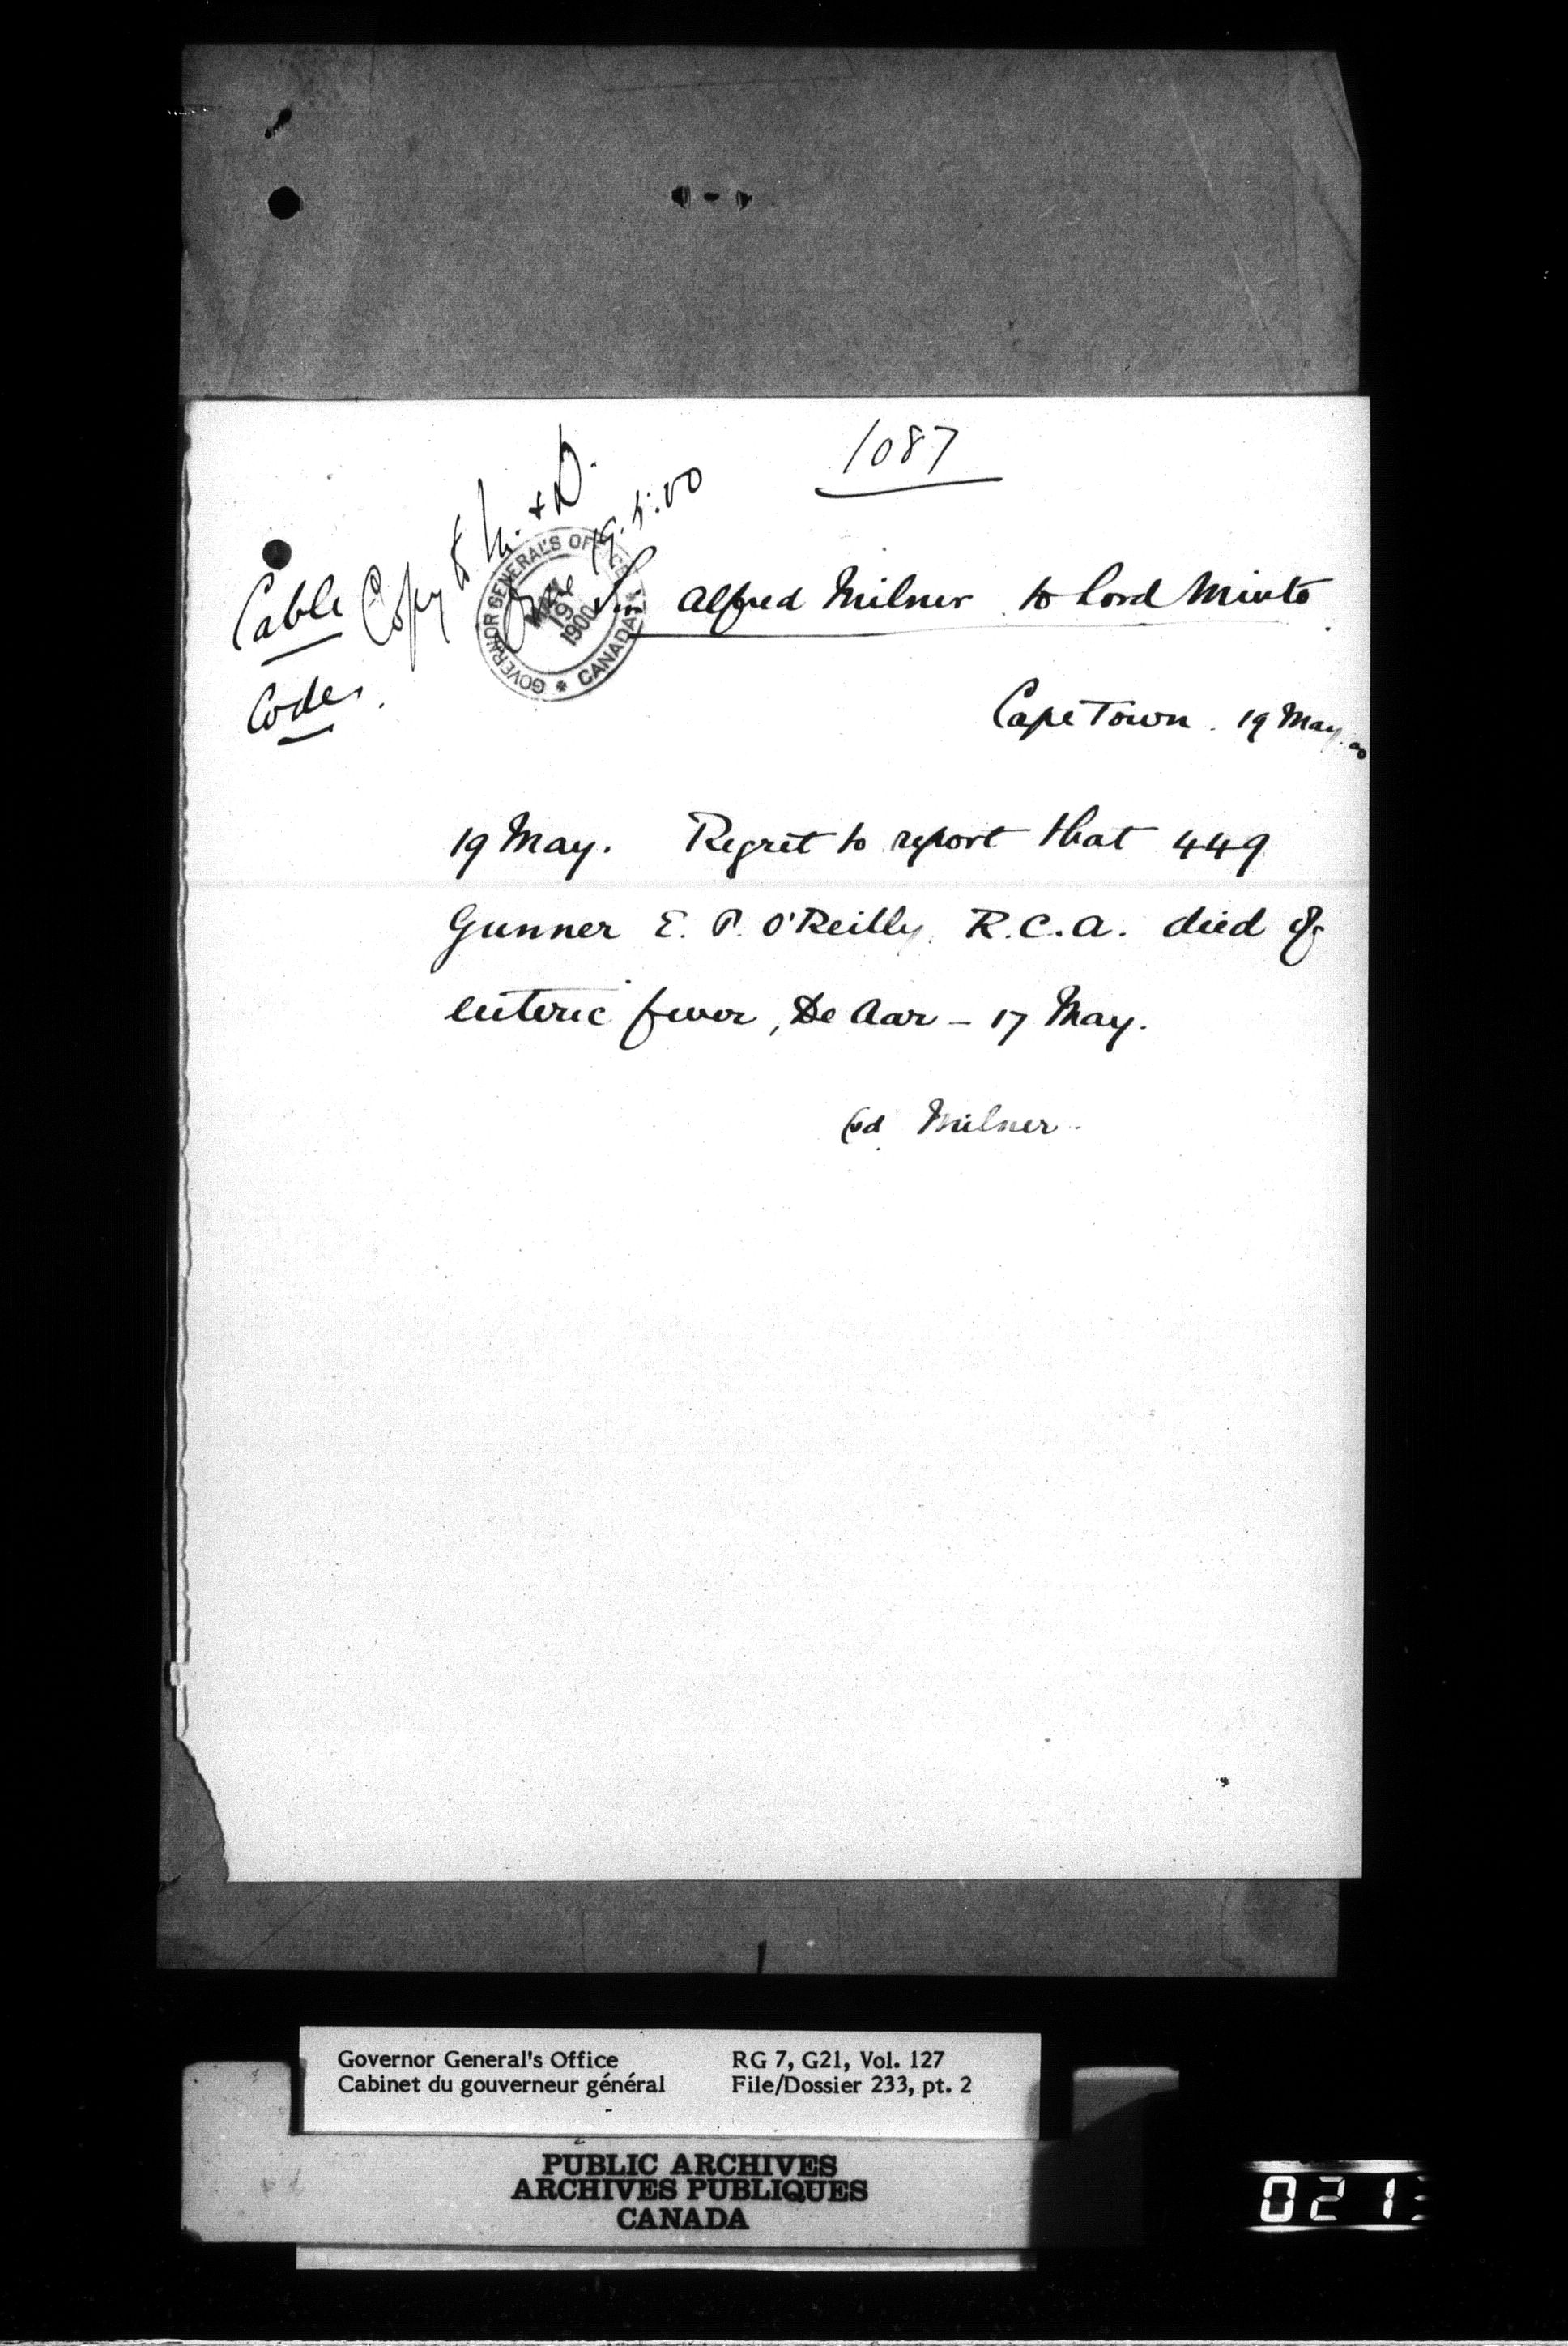 1087
Copy to M. & D.
19.5.00
Cable
Code.
GOVERNOR GENERAL'S OFFICE * CANADA *
MAY
19
1900
Sir Alfred Milner to Lord Minto
Cape Town. 19 May. 00
19 May. Regret to report that 449
Gunner E. P. O'Reilly, R.C.A. died of
enteric fever, De Aar - 17 May.
Sd Milner.
Governor General's Office RG 7, G21, Vol. 127
Cabinet du gouverneur général File/Dossier 233, pt. 2
PUBLIC ARCHIVES
ARCHIVES PUBLIQUES
CANADA
021